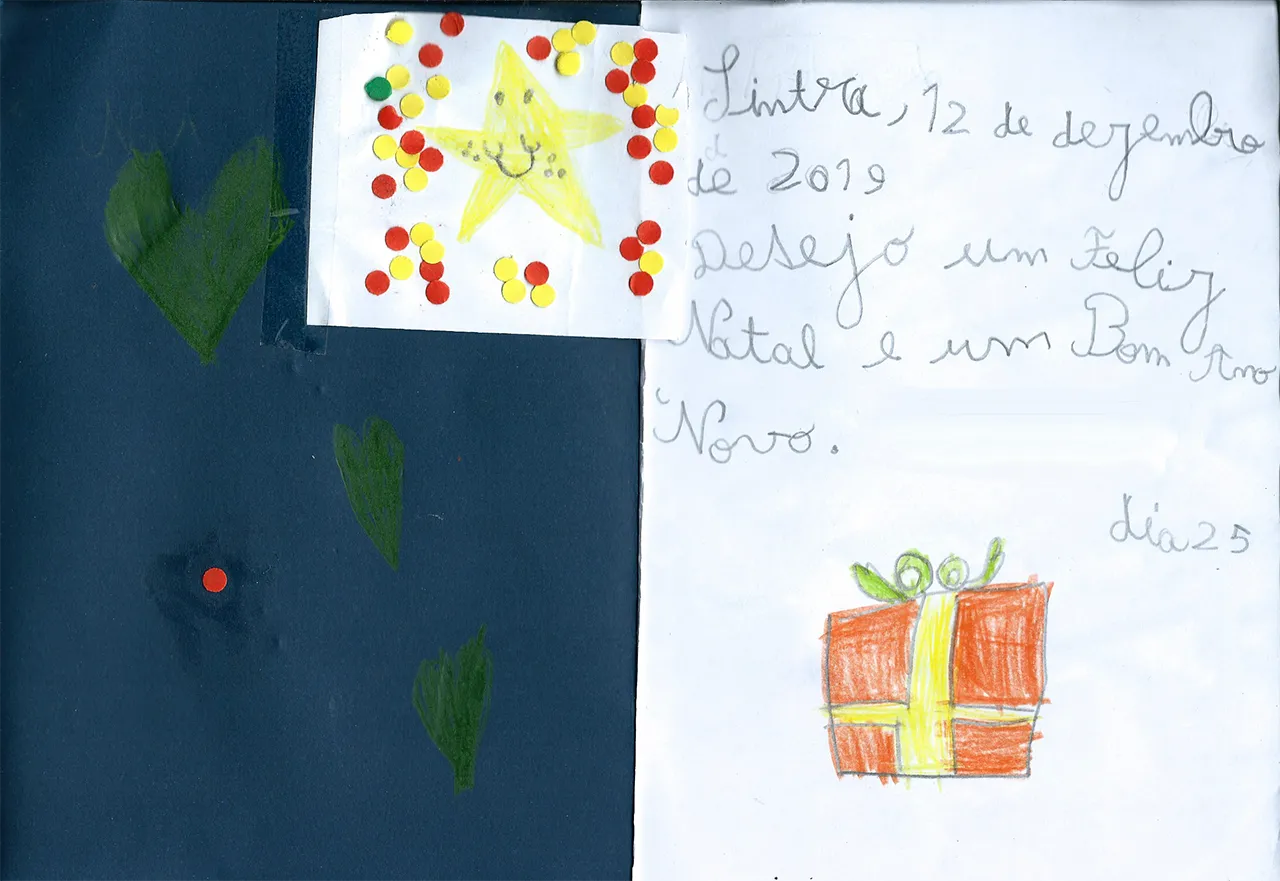 Sintra, 12 de dezembro
de 2019
Desejo um Feliz
Natal e um Bom Ano
Novo.
dia 25